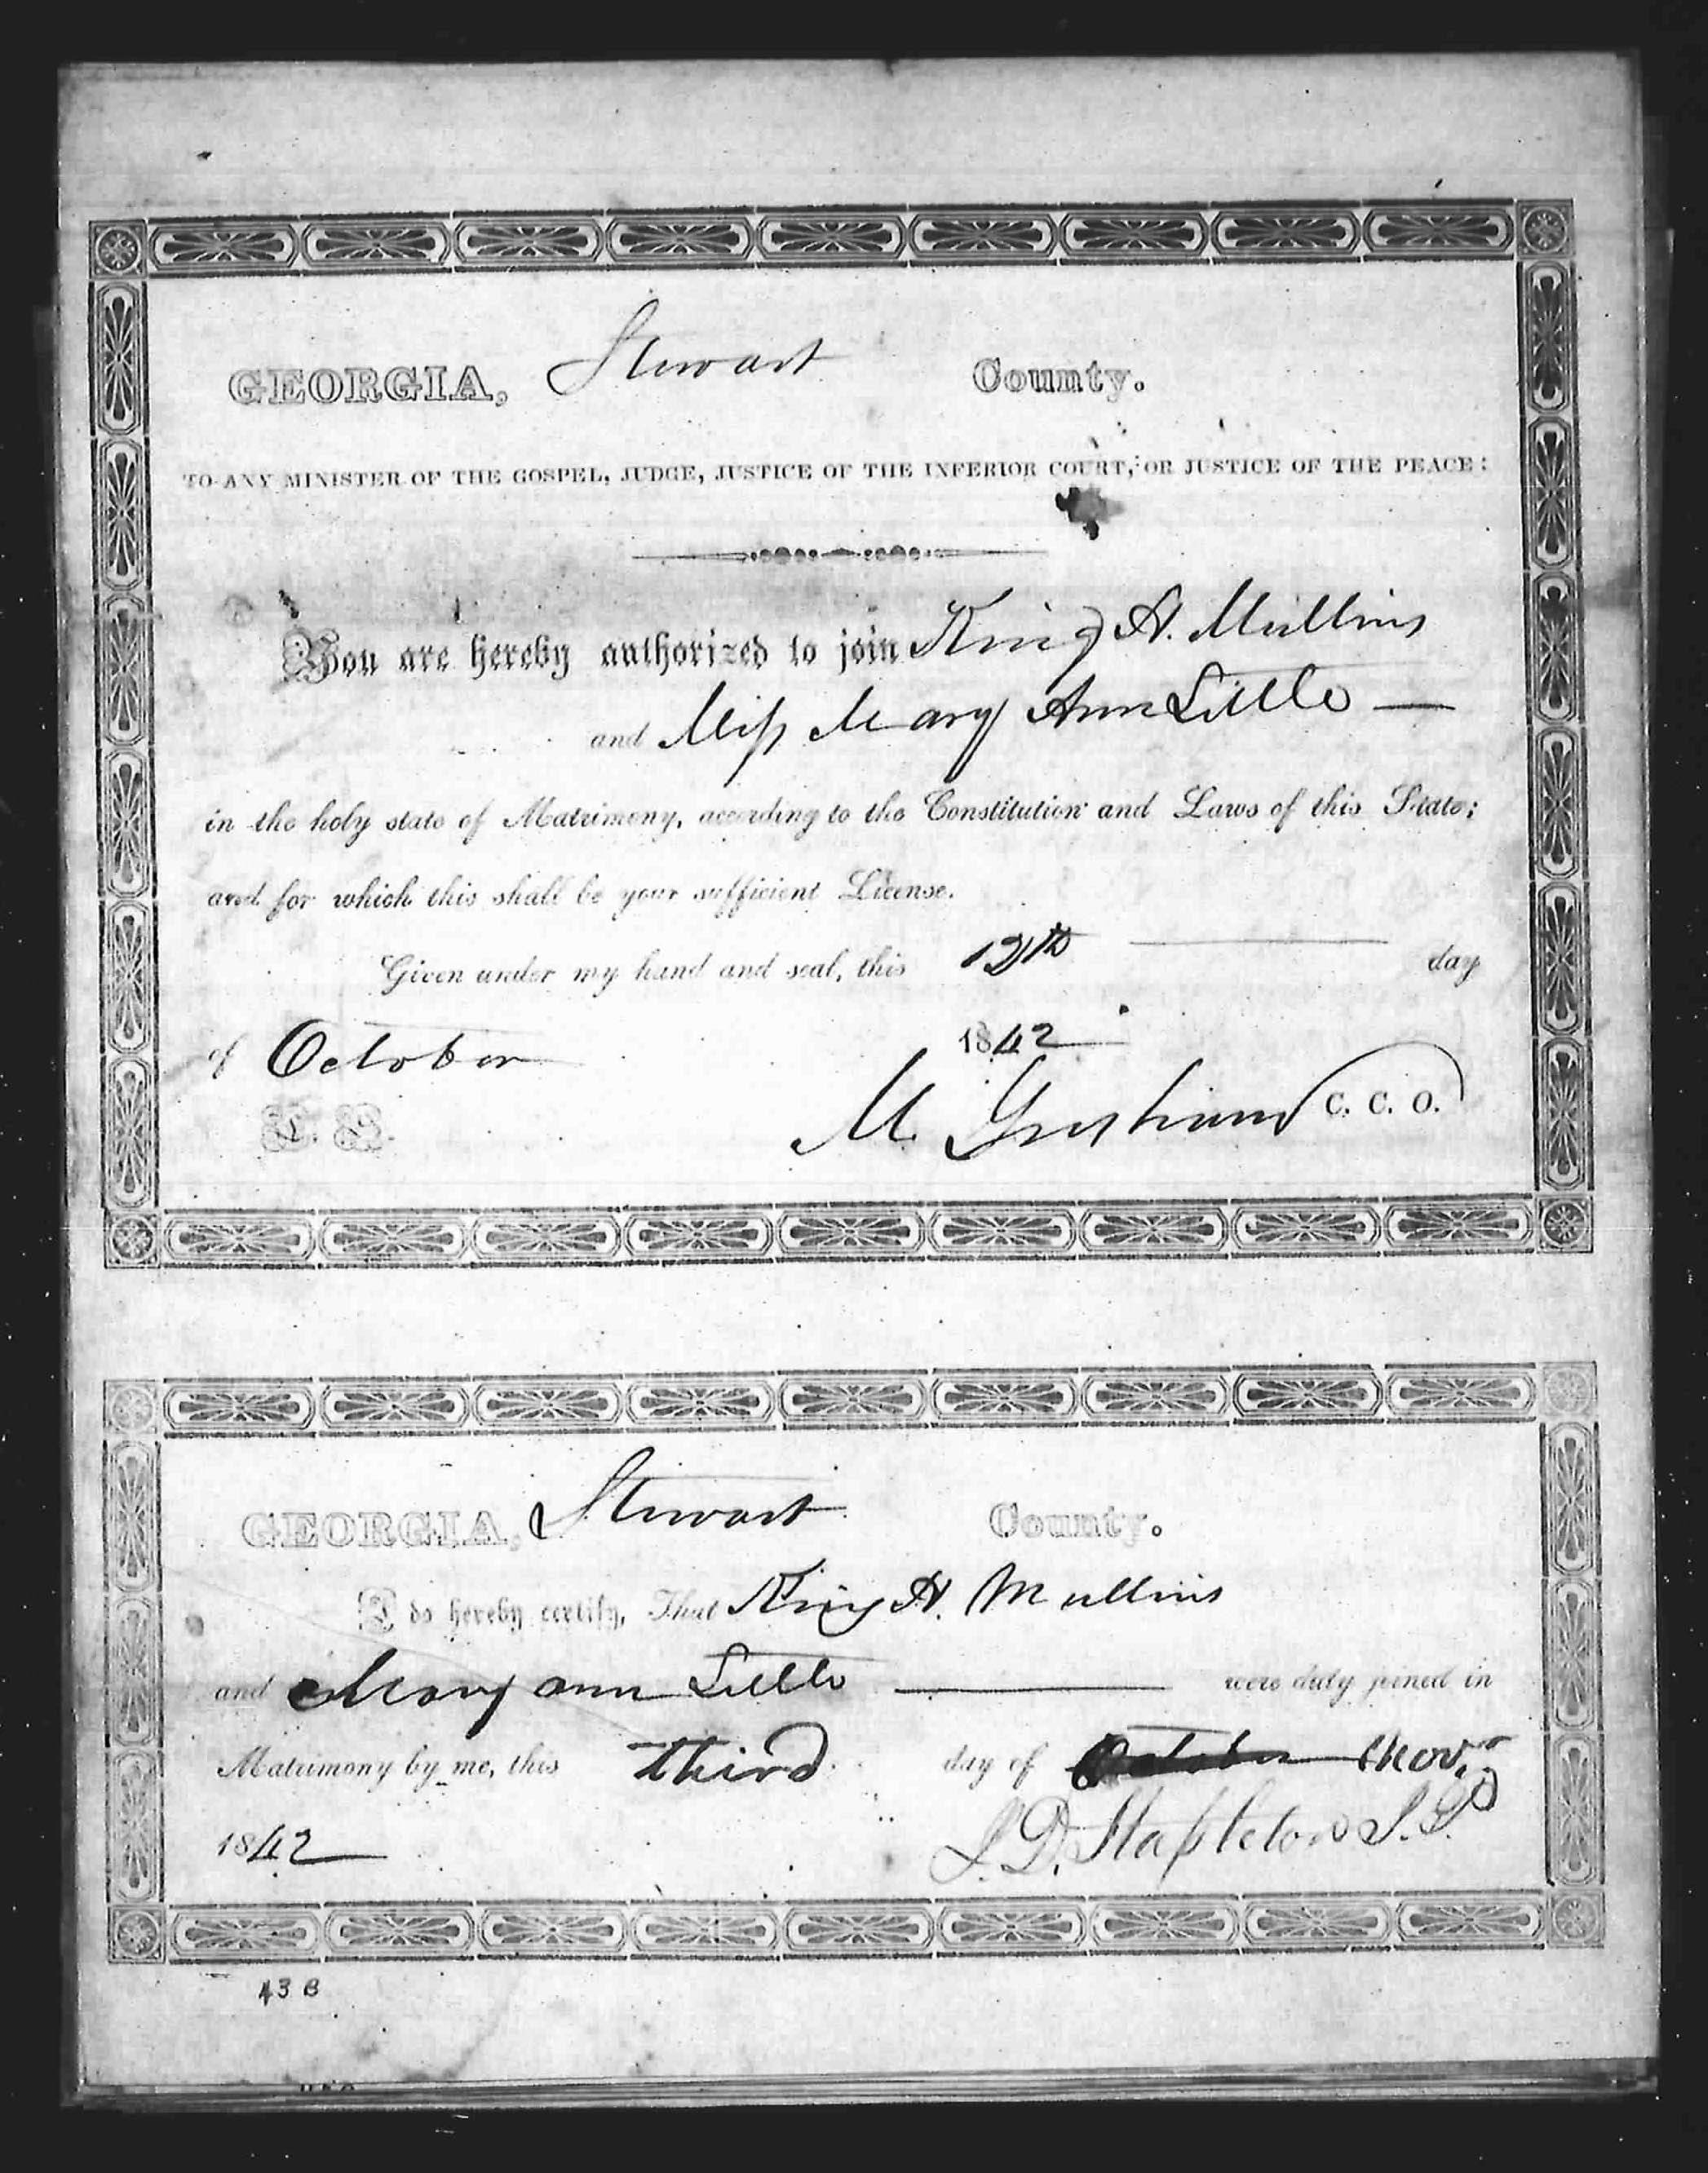 GEORGIA, Stewart County.
TO ANY MINISTER OF THE GOSPEL, JUDGE, JUSTICE OF THE INFERIOR COURT, OR JUSTICE OF THE PEACE:
You are hereby authorized to join King A. Mullins
and Miss Mary Ann Little —
in the holy state of Matrimony, according to the Constitution and Laws of this State;
and for which this shall be your sufficient License.
Given under my hand and seal, this 12th day
of October 1842
L. S. M. Gresham C. C. O.
GEORGIA, Stewart County.
I do hereby certify, That King A. Mullins
and Mary ann Little were duly joined in
Matrimony by me, this third day of October Novr
1842 Stapleton J. P.
43 B